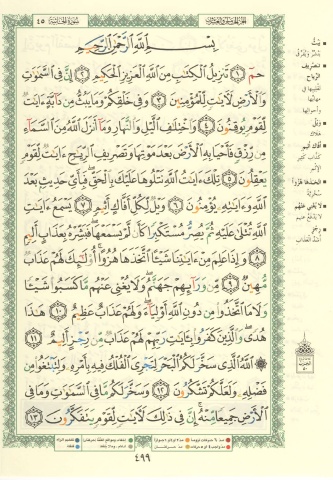 سُورَةُ الجَاثِيَةِ ٤٥
بِسْمِ اللَّهِ الرَّحْمَٰنِ الرَّحِيمِ
حمٓ ١ تَنزِيلُ الْكِتَٰبِ مِنَ اللَّهِ الْعَزِيزِ الْحَكِيمِ ٢ إِنَّ فِي السَّمَٰوَٰتِ
وَالْأَرْضِ لَآيَٰتٍ لِّلْمُؤْمِنِينَ ٣ وَفِي خَلْقِكُمْ وَمَا يَبُثُّ مِن دَآبَّةٍ ءَايَٰتٌ
لِّقَوْمٍ يُوقِنُونَ ٤ وَاخْتِلَٰفِ الَّيْلِ وَالنَّهَارِ وَمَآ أَنزَلَ اللَّهُ مِنَ السَّمَآءِ
مِن رِّزْقٍ فَأَحْيَا بِهِ الْأَرْضَ بَعْدَ مَوْتِهَا وَتَصْرِيفِ الرِّيَٰحِ ءَايَٰتٌ لِّقَوْمٍ
يَعْقِلُونَ ٥ تِلْكَ ءَايَٰتُ اللَّهِ نَتْلُوهَا عَلَيْكَ بِالْحَقِّ فَبِأَيِّ حَدِيثٍ بَعْدَ
اللَّهِ وَءَايَٰتِهِ يُؤْمِنُونَ ٦ وَيْلٌ لِّكُلِّ أَفَّاكٍ أَثِيمٍ ٧ يَسْمَعُ ءَايَٰتِ
اللَّهِ تُتْلَىٰ عَلَيْهِ ثُمَّ يُصِرُّ مُسْتَكْبِرًا كَأَن لَّمْ يَسْمَعْهَا فَبَشِّرْهُ بِعَذَابٍ أَلِيمٍ
٨ وَإِذَا عَلِمَ مِنْ ءَايَٰتِنَا شَيْـًٔا اتَّخَذَهَا هُزُوًا أُو۟لَٰٓئِكَ لَهُمْ عَذَابٌ
مُّهِينٌ ٩ مِّن وَرَآئِهِمْ جَهَنَّمُ وَلَا يُغْنِي عَنْهُم مَّا كَسَبُوا شَيْـًٔا
وَلَا مَا اتَّخَذُوا مِن دُونِ اللَّهِ أَوْلِيَآءَ وَلَهُمْ عَذَابٌ عَظِيمٌ ١٠ هَٰذَا
هُدًى وَالَّذِينَ كَفَرُوا بِآيَٰتِ رَبِّهِمْ لَهُمْ عَذَابٌ مِّن رِّجْزٍ أَلِيمٌ ١١
اللَّهُ الَّذِي سَخَّرَ لَكُمُ الْبَحْرَ لِتَجْرِيَ الْفُلْكُ فِيهِ بِأَمْرِهِ وَلِتَبْتَغُوا مِن
فَضْلِهِ وَلَعَلَّكُمْ تَشْكُرُونَ ١٢ وَسَخَّرَ لَكُم مَّا فِي السَّمَٰوَٰتِ وَمَا فِي
الْأَرْضِ جَمِيعًا مِّنْهُ إِنَّ فِي ذَٰلِكَ لَآيَٰتٍ لِّقَوْمٍ يَتَفَكَّرُونَ ١٣
٤٩٩